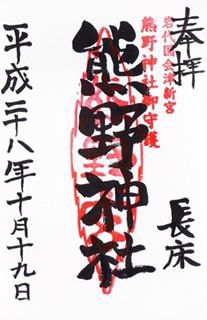 奉拝
長床
岩代国会津新宮
熊野神社御守護
熊野神社
平成二十八年十月十九日